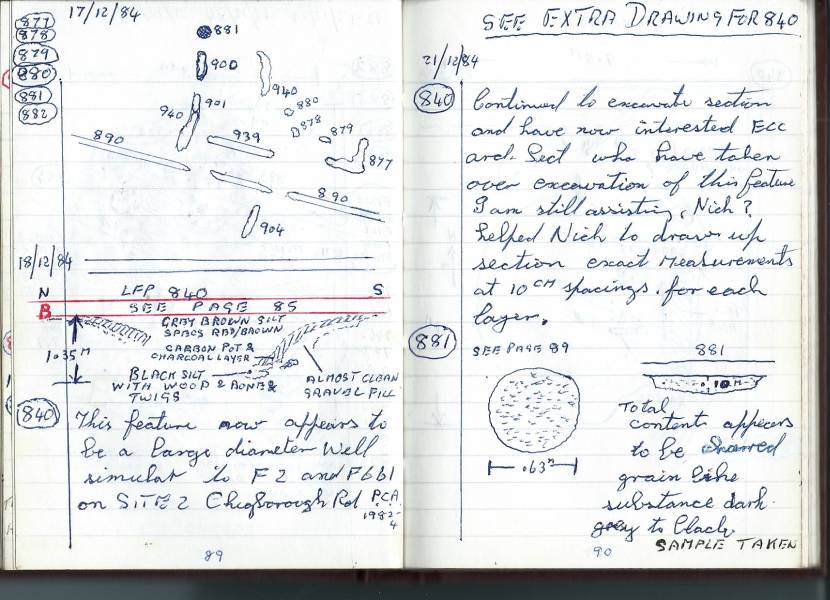 877
878
879
880
881
882
17/12/84
881
900
940
901
940
880
878
879
877
890
939
890
904
18/12/84
N LFP 840 S
B SEE PAGE 85
GREY BROWN SILT
SPECS RED/BROWN
1.035 M
CARBON POT &
CHARCOAL LAYER
BLACK SILT
WITH WOOD & BONE &
TWIGS
ALMOST CLEAN
GRAVEL FILL
840
This feature now appears to
be a large diameter Well
simular to F2 and F661
on SITE 2 Chigborough Rd P.C.A.
1982-
4
89
SEE EXTRA DRAWING FOR 840
21/12/84
840
Continued to excavate section
and have now interested ECC
arch. Sect who have taken
over excavation of this feature
I am still assisting, Nich?
helped Nich to draw up
section exact measurements
at 10 CM spacings. for each
layer.
881
SEE PAGE 89
881
.10 M
.63 M
Total
contents appears
to be Charred
grain like
substance dark
grey to black
SAMPLE TAKEN
90